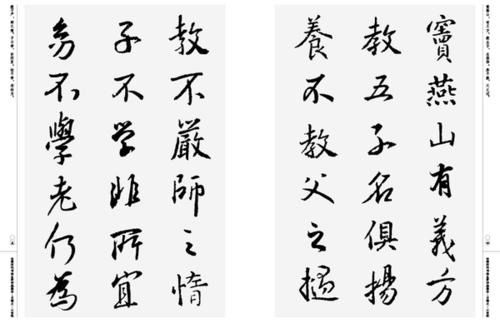 竇燕山有義方
教五子名俱揚
養不教父之過
教不嚴師之惰
子不学非所宜
幼不學老何為